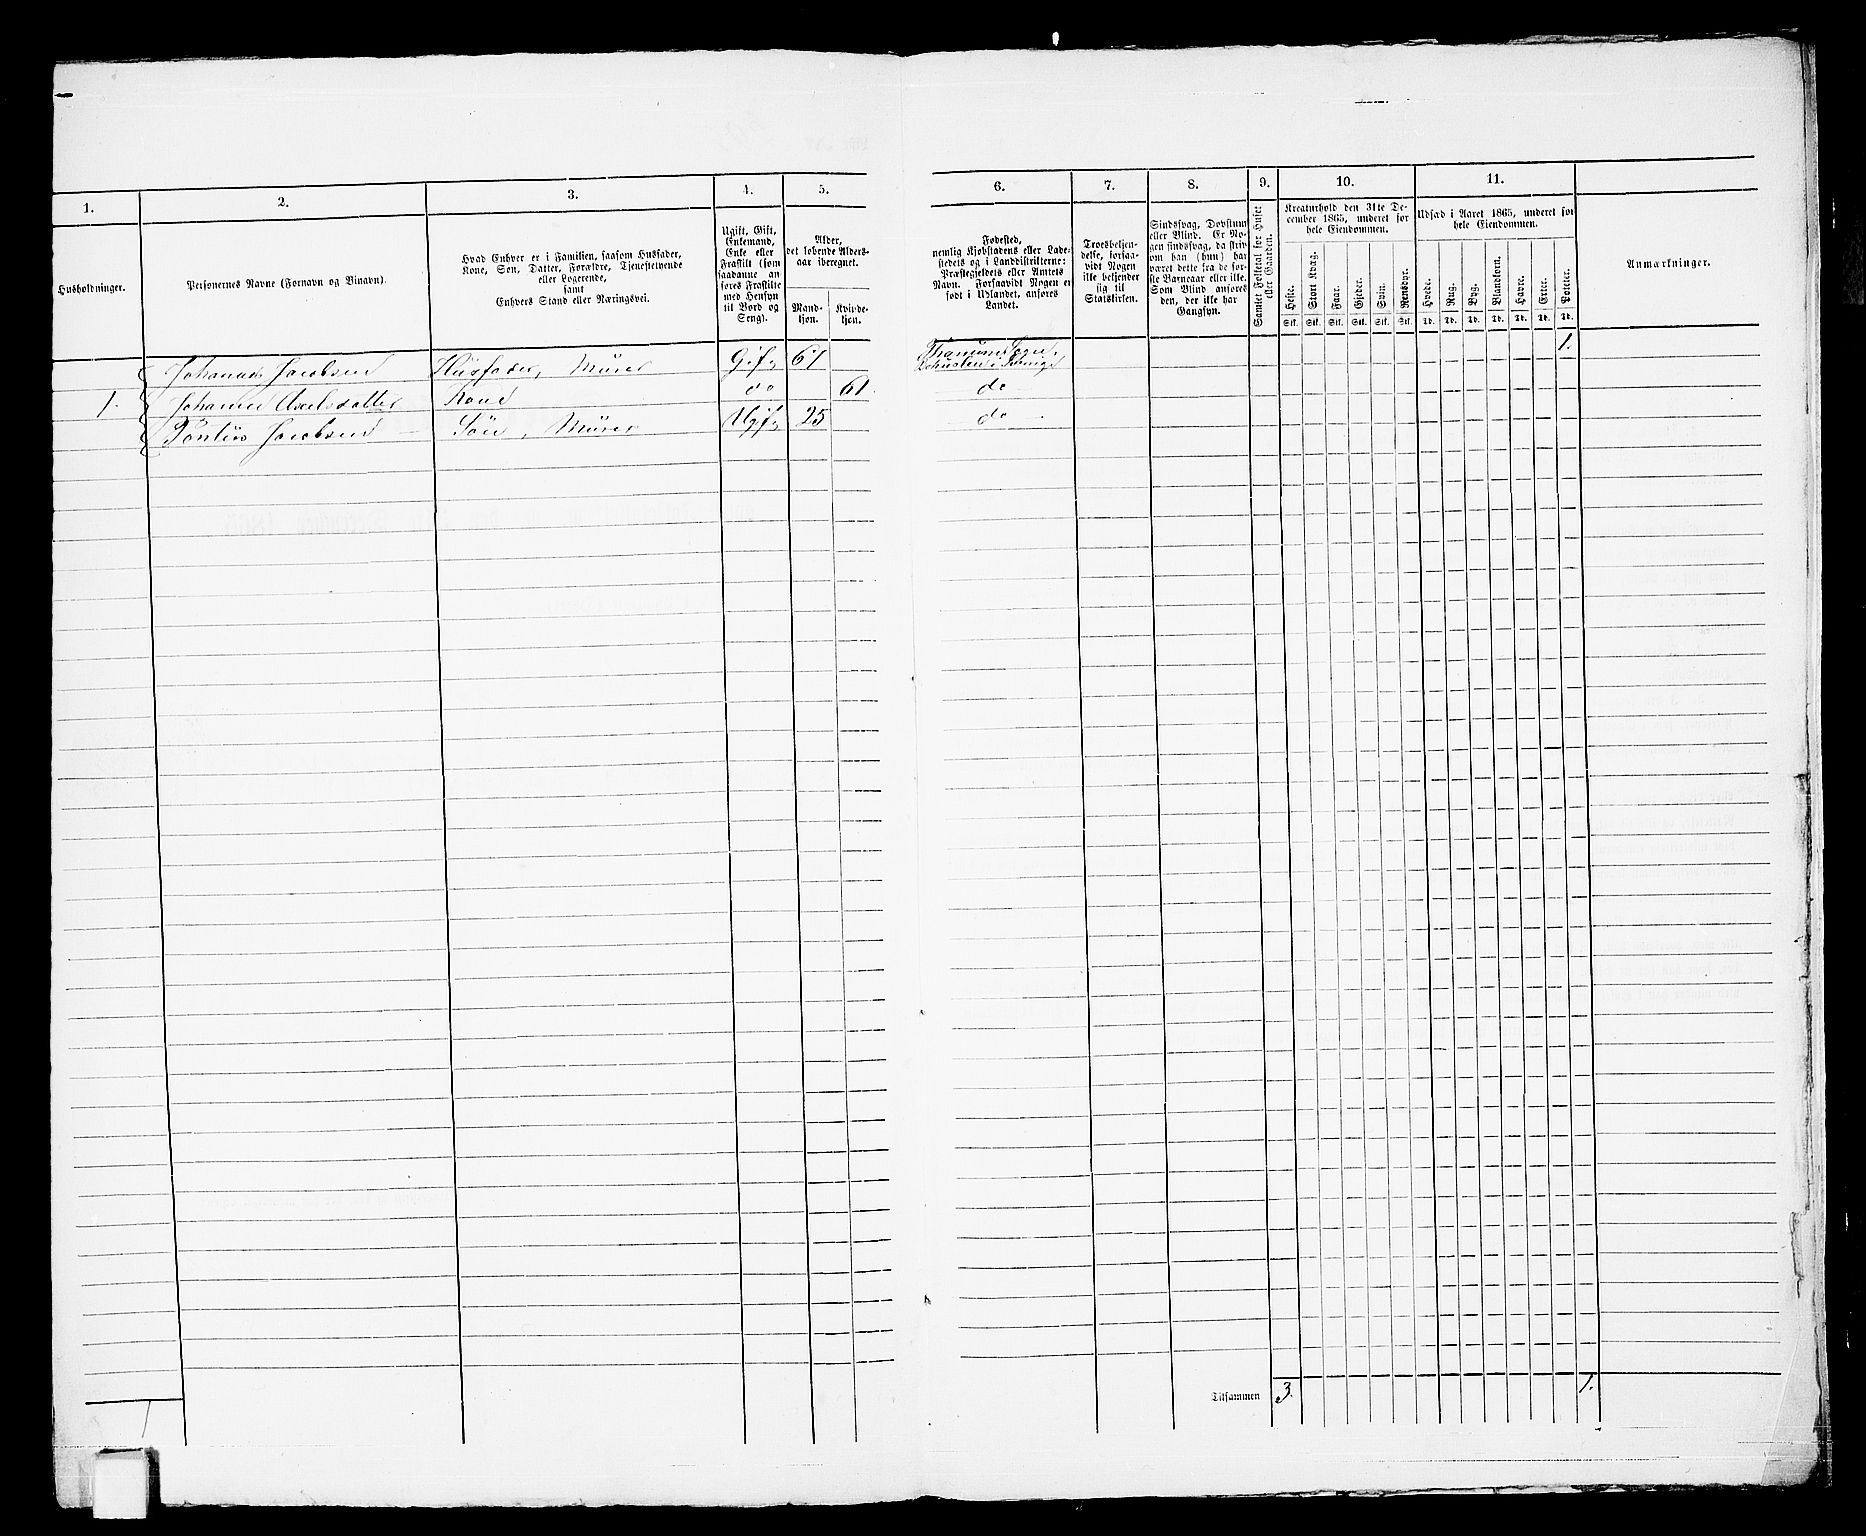 1. 2. 3. 4. 5. 6. 7. 8. 9. 10. 11.
Husholdninger.
Personernes Navne (Fornavn og Binavn).
Hvad Enhver er i Familien, saasom Husfader,
Kone, Søn, Datter, Forældre, Tjenestetyende
eller Logerende,
samt
Enhvers Stand eller Næringsvei.
Ugift, Gift,
Enkemand,
Enke eller
Fraskilt (som
saadanne an-
føres Fraskilte
med Hensyn
til Bord og
Seng).
Alder,
det løbende Alders-
aar iberegnet.
Mand-
kjøn.
Kvinde-
kjøn.
Fødested,
nemlig Kjøbstadens eller Lade-
stedets og i Landdistrikterne:
Præstegjeldets eller Amtets
Navn. Forsaavidt Nogen er
født i Udlandet, anføres
Landet.
Troesbekjen-
delse, forsaa-
vidt Nogen
ikke bekjender
sig til
Statskirken.
Sindssvag, Døvstum
eller Blind. Er No-
gen sindssvag, da skriv
om han (hun) har
været dette fra de før-
ste Barneaar eller ikke.
Som Blind anføres
den, der ikke har
Gangsyn.
Samlet Folketal for Huset
eller Gaarden.
Kreaturhold den 31te De-
cember 1865, underet for
hele Eiendommen.
Heste.
Stort Kvæg.
Faar.
Gjeder.
Svin.
Rensdyr.
Stk. Stk. Stk. Stk. Stk. Stk.
Udsæd i Aaret 1865, underet for
hele Eiendommen.
Hvede.
Rug.
Byg.
Blandkorn.
Havre.
Erter.
Poteter.
Td. Td. Td. Td. Td. Td. Td.
Anmærkninger.
Jacobsen Husfader, Murer Gift 61 Sogn, 1.
1. Johanne Axelsdatter Kone do 61 do
Pontus Jacobsen Søn, Murer Ugift 25 do
Tilsammen 3. 1.
1